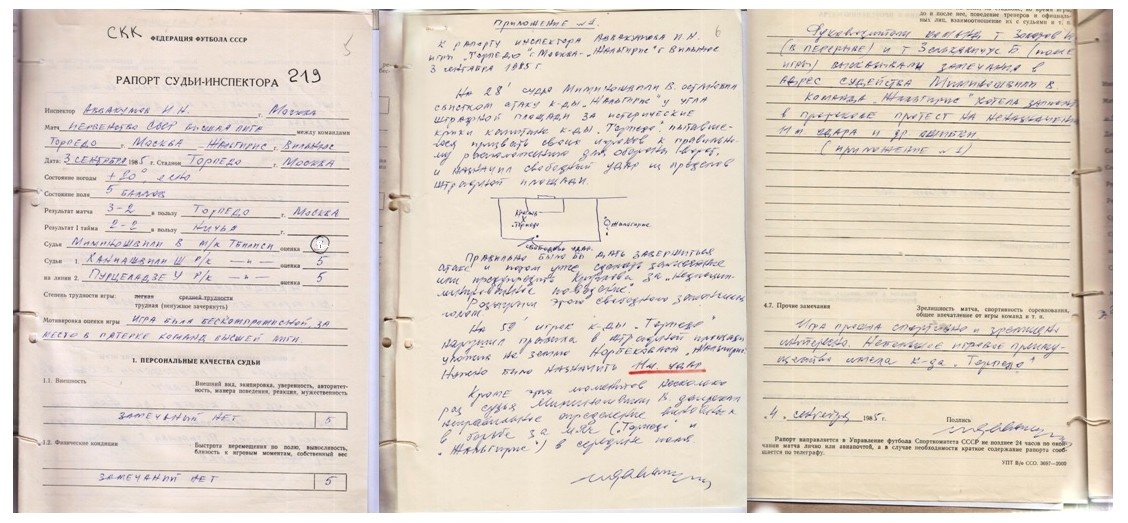 СКК
ФЕДЕРАЦИЯ ФУТБОЛА СССР
РАПОРТ СУДЬИ-ИНСПЕКТОРА 219
Инспектор Аввакумов И.Н. г. Москва
Матч Первенство СССР Высшая лига между командами
Торпедо г. Москва — Жальгирис г. Вильнюс
Дата: 3 сентября 1985 г. Стадион Торпедо г. Москва
Состояние погоды +20° ясно
Состояние поля 5 баллов
Результат матча 3-2 в пользу Торпедо г. Москва
Результат I тайма 2-2 в пользу Ничья г.
Судья Миминошвили В м/к Тбилиси оценка
Судьи 1. Ханиашвили Ш р/к —"— оценка 5
на линии 2. Пурцеладзе У р/к —"— оценка 5
Степень трудности игры: легкие средней трудности
трудная (ненужное зачеркнуть)
Мотивировка оценки игры Игра была бескомпромисной за
место в пятерке команд высшей лиги.
1. ПЕРСОНАЛЬНЫЕ КАЧЕСТВА СУДЬИ
1.1. Внешность Внешний вид, экипировка, уверенность, авторитет-
ность, манера поведения, реакция, мужественность
Замечаний нет 5
1.2. Физические кондиции Быстрота перемещения по полю, выносливость,
близость к игровым моментам, собственный вес
Замечаний нет 5
Приложение №1. 6
К рапорту инспектора Аввакумова И.Н.
игры "Торпедо" г. Москва - "Жальгирис" г. Вильнюс
3 сентября 1985 г.
На 28' судья Миминошвили В. остановил
свистком атаку к-ды "Жальгирис" у угла
штрафной площади за истерические
крики капитана к-ды "Торпедо", пытавше-
гося призвать своих игроков к правильно-
му расположению для обороны ворот,
и назначил свободный удар из пределов
штрафной площади.
Торпедо
Жальгирис
свободный удар.
Правильно было бы дать завершиться
атаке и потом уже сделать замечание
или предупредить Круглова за "недисцип-
линированное поведение"
Розыгрыш этого свободного закончился
голом
На 59' игрок к-ды "Торпедо"
нарушил правила в штрафной площади
уложив на землю Нарбековаса "Жальгирис"
Нужно было назначить 11м. удар
Кроме этих моментов несколько
раз судья Миминошвили В. допускал
неправильное определение виновных
в борьбе за мяч ("Торпедо" и
"Жальгирис") в середине поля
до и после нее, поведение тренеров и официаль-
ных лиц, взаимоотношения их с судьями и т. п.
Руководители команд т. Захаров
(в перерыве) и т. Зелькявичус Б. (после
игры) высказывали замечания в
адрес судейства Миминошвили В
Команда "Жальгирис" хотела записать
в протокол протест на неназначение
11м. удара и др ошибки
(приложение №1)
4.7. Прочие замечания Зрелищность матча, спортивность соревнования,
общее впечатление от игры команд и т. п.
Игра прошла спортивно и с зрелищным
интересом. Небольшое игровое преиму-
щество имела к-да "Торпедо"
4. сентября 1985 г. Подпись
Рапорт направляется в Управление футбола Спорткомитета СССР не позднее 24 часов по окон-
чании матча лично или авиапочтой, а в случае необходимости краткое содержание рапорта сооб-
щается по телеграфу.
УПТ В/о ССО. 3697—2000